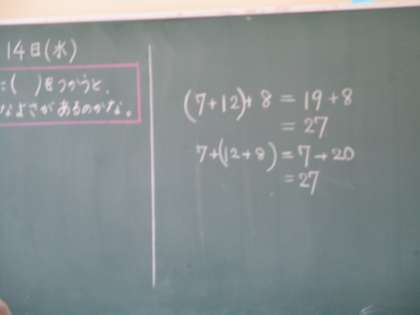 14日(水)
に( )をつかうと、
なよさがあるのかな。
(7+12)+8=19+8
=27
7+(12+8)=7+20
=27